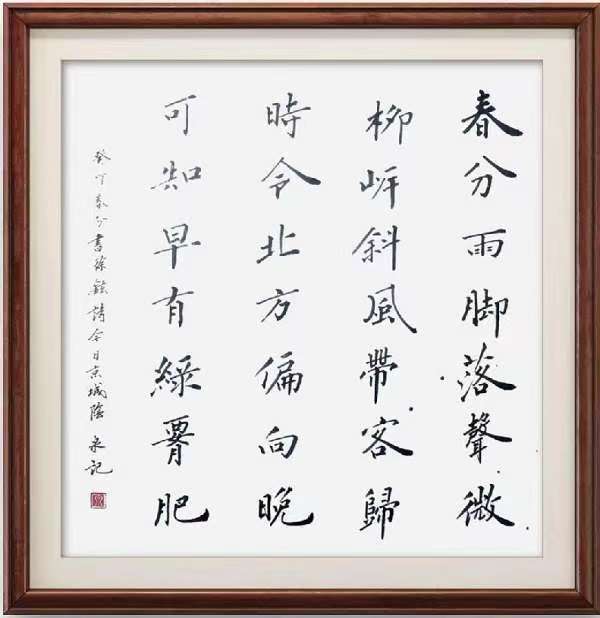 春分雨脚落聲微
柳岸斜風帶客歸
時令北方偏向晚
可知早有綠腰肥
癸卯春分書徐鉉詩今日京城陰 泉記